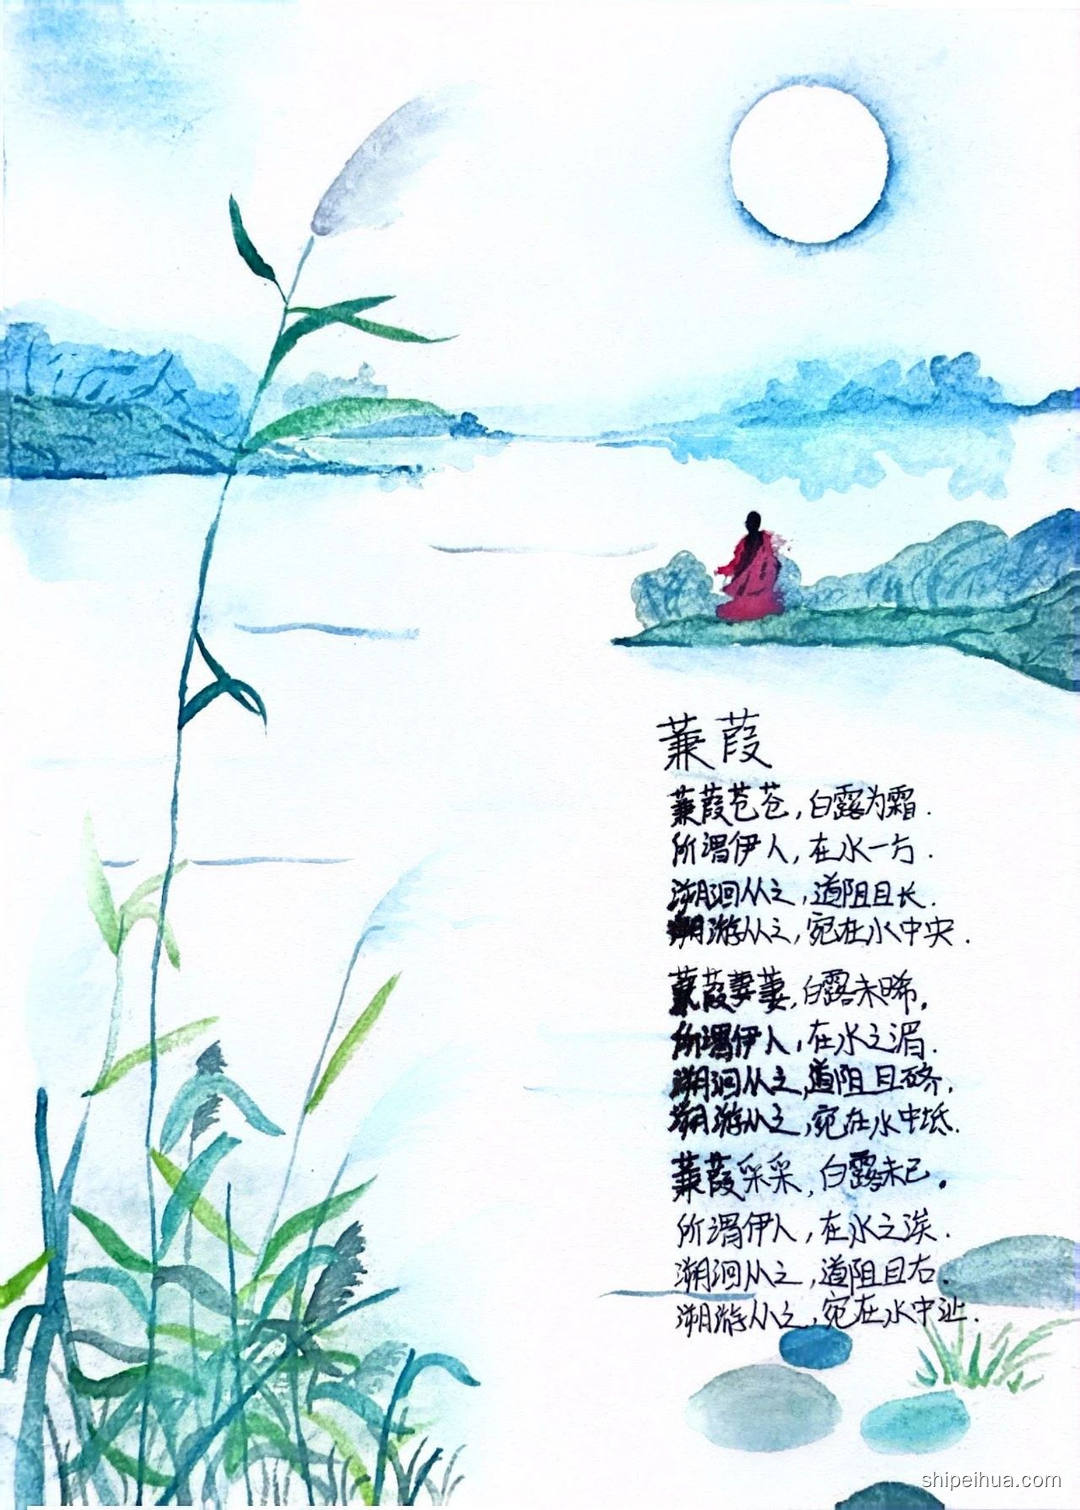 蒹葭
蒹葭苍苍,白露为霜.
所谓伊人,在水一方.
溯洄从之,道阻且长.
溯游从之,宛在水中央.
蒹葭萋萋,白露未晞.
所谓伊人,在水之湄.
溯洄从之,道阻且跻.
溯游从之,宛在水中坻.
蒹葭采采,白露未已.
所谓伊人,在水之涘.
溯洄从之,道阻且右.
溯游从之,宛在水中沚.
shipeihua.com